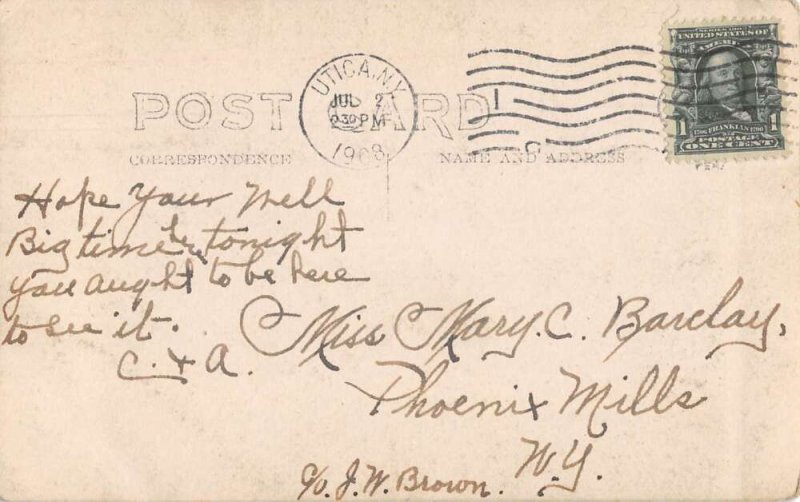 UTICA, N.Y.
JUL 2
2-30 PM
1908
SERIES 1902
UNITED STATES OF AMERICA
1706 FRANKLIN 1790
1 POSTAGE 1
ONE CENT
POST CARD
CORRESPONDENCE
NAME AND ADDRESS
Hope Your Well
Big time here tonight
you aught to be here
to see it.
C. & A.
Miss Mary. C. Barclay,
Phoenix Mills
N.Y.
c/o. J. W. Brown.